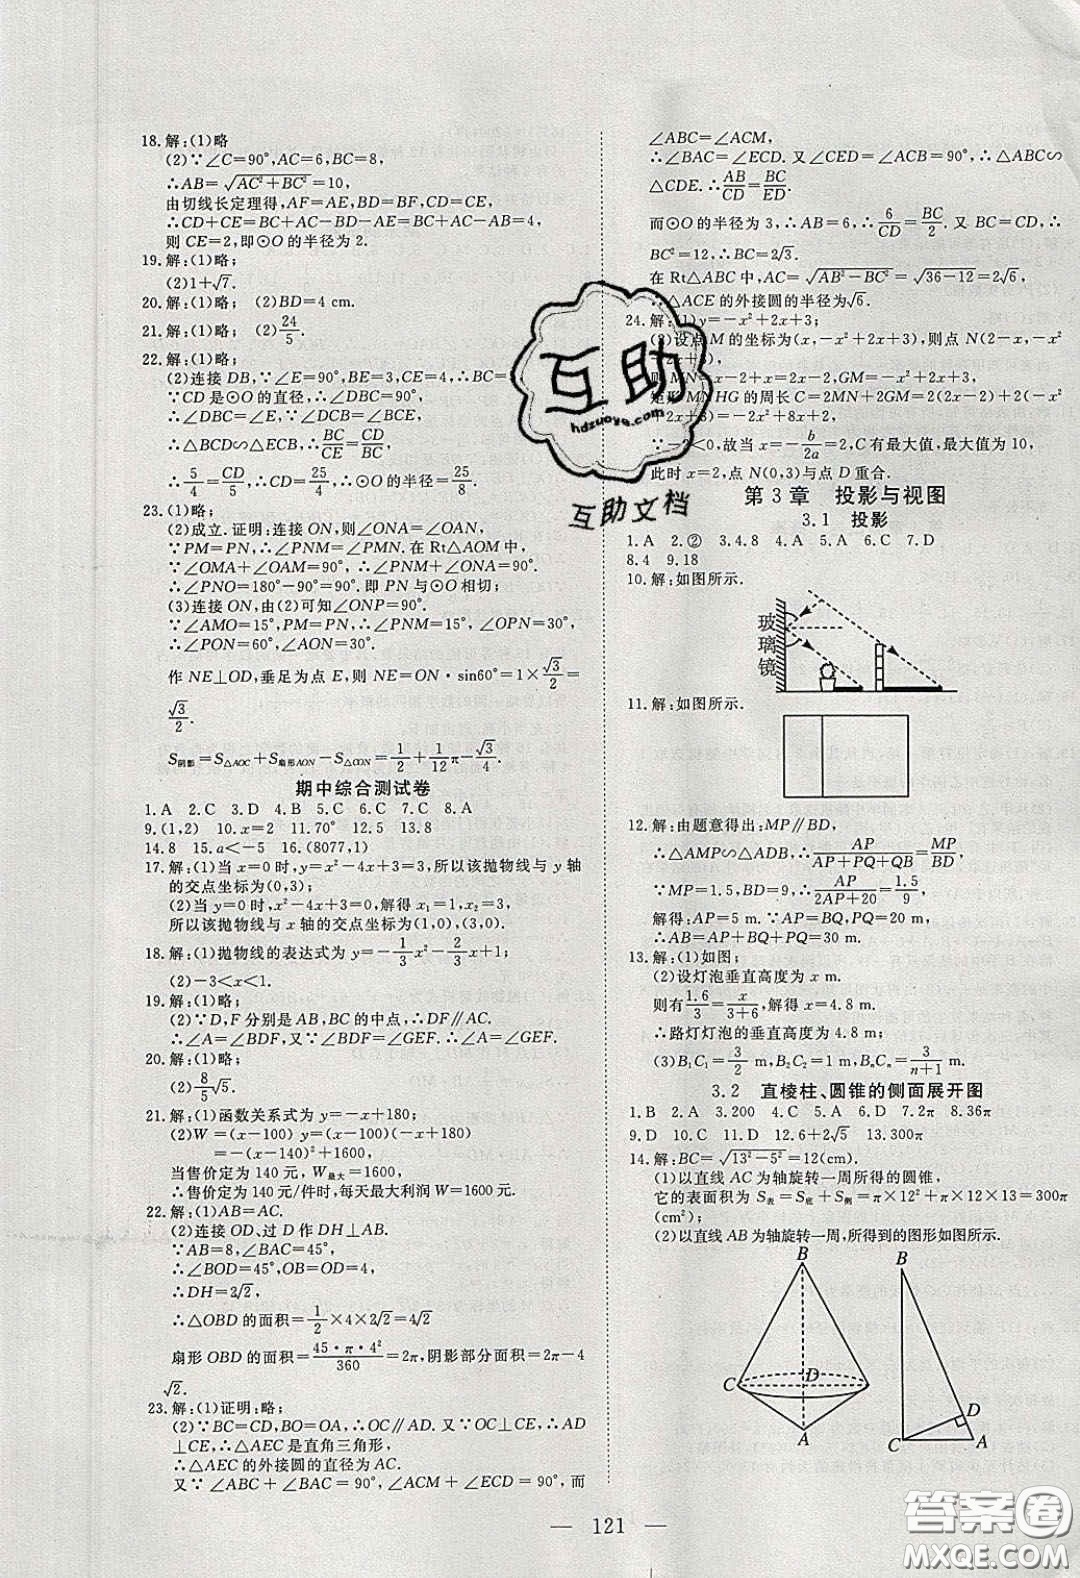 18.解:(1)略
(2)∵∠C=90°,AC=6,BC=8,
∴AB=√(AC²+BC²)=10,
由切线长定理得,AF=AE,BD=BF,CD=CE,
∴CD+CE=BC+AC-BD-AE=BC+AC-AB=4,
则 CE=2,即⊙O的半径为 2.
19.解:(1)略;
(2)1+√7.
20.解:(1)略; (2)BD=4 cm.
21.解:(1)略; (2)24/5.
22.解:(1)略;
(2)连接 DB,∵∠E=90°,BE=3,EC=4,∴BC=
∵CD 是⊙O的直径,∴∠DBC=90°.
∴∠DBC=∠E,∵∠DCB=∠BCE,
∴△BCD∽△ECB,∴BC/CE=CD/BC,
∴5/4=CD/5,∴CD=25/4,∴⊙O的半径=25/8.
23.(1)略;
(2)成立.证明:连接 ON,则∠ONA=∠OAN,
∵PM=PN,∴∠PNM=∠PMN.在 Rt△AOM 中,
∵∠OMA+∠OAM=90°,∴∠PNM+∠ONA=90°.
∴∠PNO=180°-90°=90°.即 PN 与⊙O相切;
(3)连接 ON,由(2)可知∠ONP=90°.
∵∠AMO=15°,PM=PN,∴∠PNM=15°,∠OPN=30°,
∴∠PON=60°,∠AON=30°.
作 NE⊥OD,垂足为点 E,则 NE=ON·sin60°=1×√3/2=
√3/2.
S阴影=S△AOC+S扇形AON-S△CON=1/2+1/12π-√3/4.
期中综合测试卷
1.A 2.C 3.D 4.B 5.C 6.C 7.C 8.A
9.(1,2) 10.x=2 11.70° 12.5 13.8
14.8 15.a<-5 16.(8077,1)
17.解:(1)当 x=0 时,y=x²-4x+3=3,所以该抛物线与 y 轴
的交点坐标为(0,3);
(2)当 y=0 时,x²-4x+3=0,解得 x₁=1,x₂=3,
所以该抛物线与 x 轴的交点坐标为(1,0),(3,0).
18.解:(1)抛物线的表达式为 y=-1/3x²-2/3x+1;
(2)-3<x<1.
19.解:(1)略;
(2)∵D,F 分别是 AB,BC 的中点,∴DF∥AC.
∴∠A=∠BDF,又∵∠BDF=∠GEF.∴∠A=∠GEF.
20.解:(1)略;
(2)8/5√5.
21.解:(1)函数关系式为 y=-x+180;
(2)W=(x-100) y=(x-100)(-x+180)
=-(x-140)²+1600,
当售价定为 140 元,W最大=1600,
∴售价定为 140 元/件时,每天最大利润 W=1600 元.
22.解:(1)AB=AC.
(2)连接 OD、过 D 作 DH⊥AB.
∵AB=8,∠BAC=45°,
∴∠BOD=45°,OB=OD=4,
∴DH=2√2,
∴△OBD 的面积=1/2×4×2√2=4√2
扇形 OBD 的面积=45·π·4²/360=2π,阴影部分面积=2π-4
√2.
23.解:(1)证明:略;
(2)∵BC=CD,BO=OA,∴OC∥AD.又∵OC⊥CE,∴AD
⊥CE,∴△AEC 是直角三角形,
∴△AEC 的外接圆的直径为 AC.
又∵∠ABC+∠BAC=90°,∠ACM+∠ECD=90°,而
∠ABC=∠ACM,
∴∠BAC=∠ECD.又∠CED=∠ACB=90°,∴△ABC∽
△CDE.∴AB/CD=BC/ED
而⊙O的半径为 3,∴AB=6,∴6/CD=BC/2.又 BC=CD,∴
BC²=12,∴BC=2√3.
在 Rt△ABC 中,AC=√(AB²-BC²)=√(36-12)=2√6,
∴△ACE 的外接圆的半径为√6.
24.解:(1)y=-x²+2x+3;
(2)设点 M 的坐标为(x,-x²+2x+3),则点 N(2-x,-x²
+2x+3),
则 MN=x-2+x=2x-2,GM=-x²+2x+3,
矩形 MNHG 的周长 C=2MN+2GM=2(2x-2)+2(-x²
+2x+3)=-2x²+8x+2,
∵-2<0,故当 x=-b/2a=2,C 有最大值,最大值为 10,
此时 x=2,点 N(0,3)与点 D 重合.
第 3 章 投影与视图
3.1 投影
1.A 2.② 3.4.8 4.A 5.A 6.C 7.D
8.4 9.18
10.解:如图所示.
玻璃镜
11.解:如图所示.
12.解:由题意得出:MP∥BD,
∴△AMP∽△ADB,∴AP/(AP+PQ+QB)=MP/BD,
∵MP=1.5,BD=9,∴AP/(2AP+20)=1.5/9,
解得:AP=5 m.∵AP=BQ,PQ=20 m,
∴AB=AP+BQ+PQ=30 m.
13.解:(1)如图;
(2)设灯泡垂直高度为 x m.
则有1.6/3=x/(3+6),解得 x=4.8 m.
∴路灯灯泡的垂直高度为 4.8 m;
(3)B₁C₁=3/2 m,B₂C₂=1 m,BₙCₙ=3/(n+1) m.
3.2 直棱柱、圆锥的侧面展开图
1.B 2.A 3.200 4.A 5.C 6.D 7.2π 8.36π
9.D 10.C 11.D 12.6+2√5 13.300π
14.解:BC=√(13²-5²)=12(cm).
(1)以直线 AC 为轴旋转一周所得的圆锥,
它的表面积为 S表=S底+S侧=π×12²+π×12×13=300π
(cm²);
(2)以直线 AB 为轴旋转一周,所得到的图形如图所示.
B
C
D
A
B
C
D
A
— 121 —
互助
hdzuoye.com
互助文档
答案卷
MXQE.COM